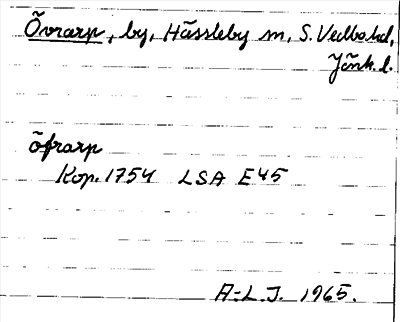 Övrarp, by, Hässleby sn, S. Vedbo hd,
Jönk. l.
öfrarp
Kop. 1754 LSA E45
A-L.J. 1965.